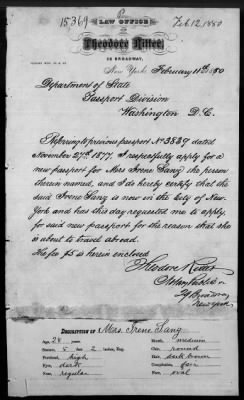 15369
Feb. 12, 1880
LAW OFFICE
Theodore Ritter
BROADWAY,
New York February 11th 1880
Department of State
Passport Division
Washington D.C.
Referring to previous passport No 3839 dated
November 27th 1877. I respectfully apply for a
new passport for Mrs Irene Lang the person
therein named, and I do hereby certify that the
said Irene Lang is now in the City of New-
York and has this day requested me to apply,
for said new passport for the reason that she
is about to travel abroad.
His fee $5 is herein enclosed
Theodore Ritter
Notary Public
Broadway
New York
DESCRIPTION OF Mrs. Irene Lang
Age, 28 years
Stature, 5 2 Inches, Eng.
Forehead, high
Eyes, dark
Nose, regular
Mouth, medium
Chin, round
Hair, dark brown
Complexion, fair
Face, oval